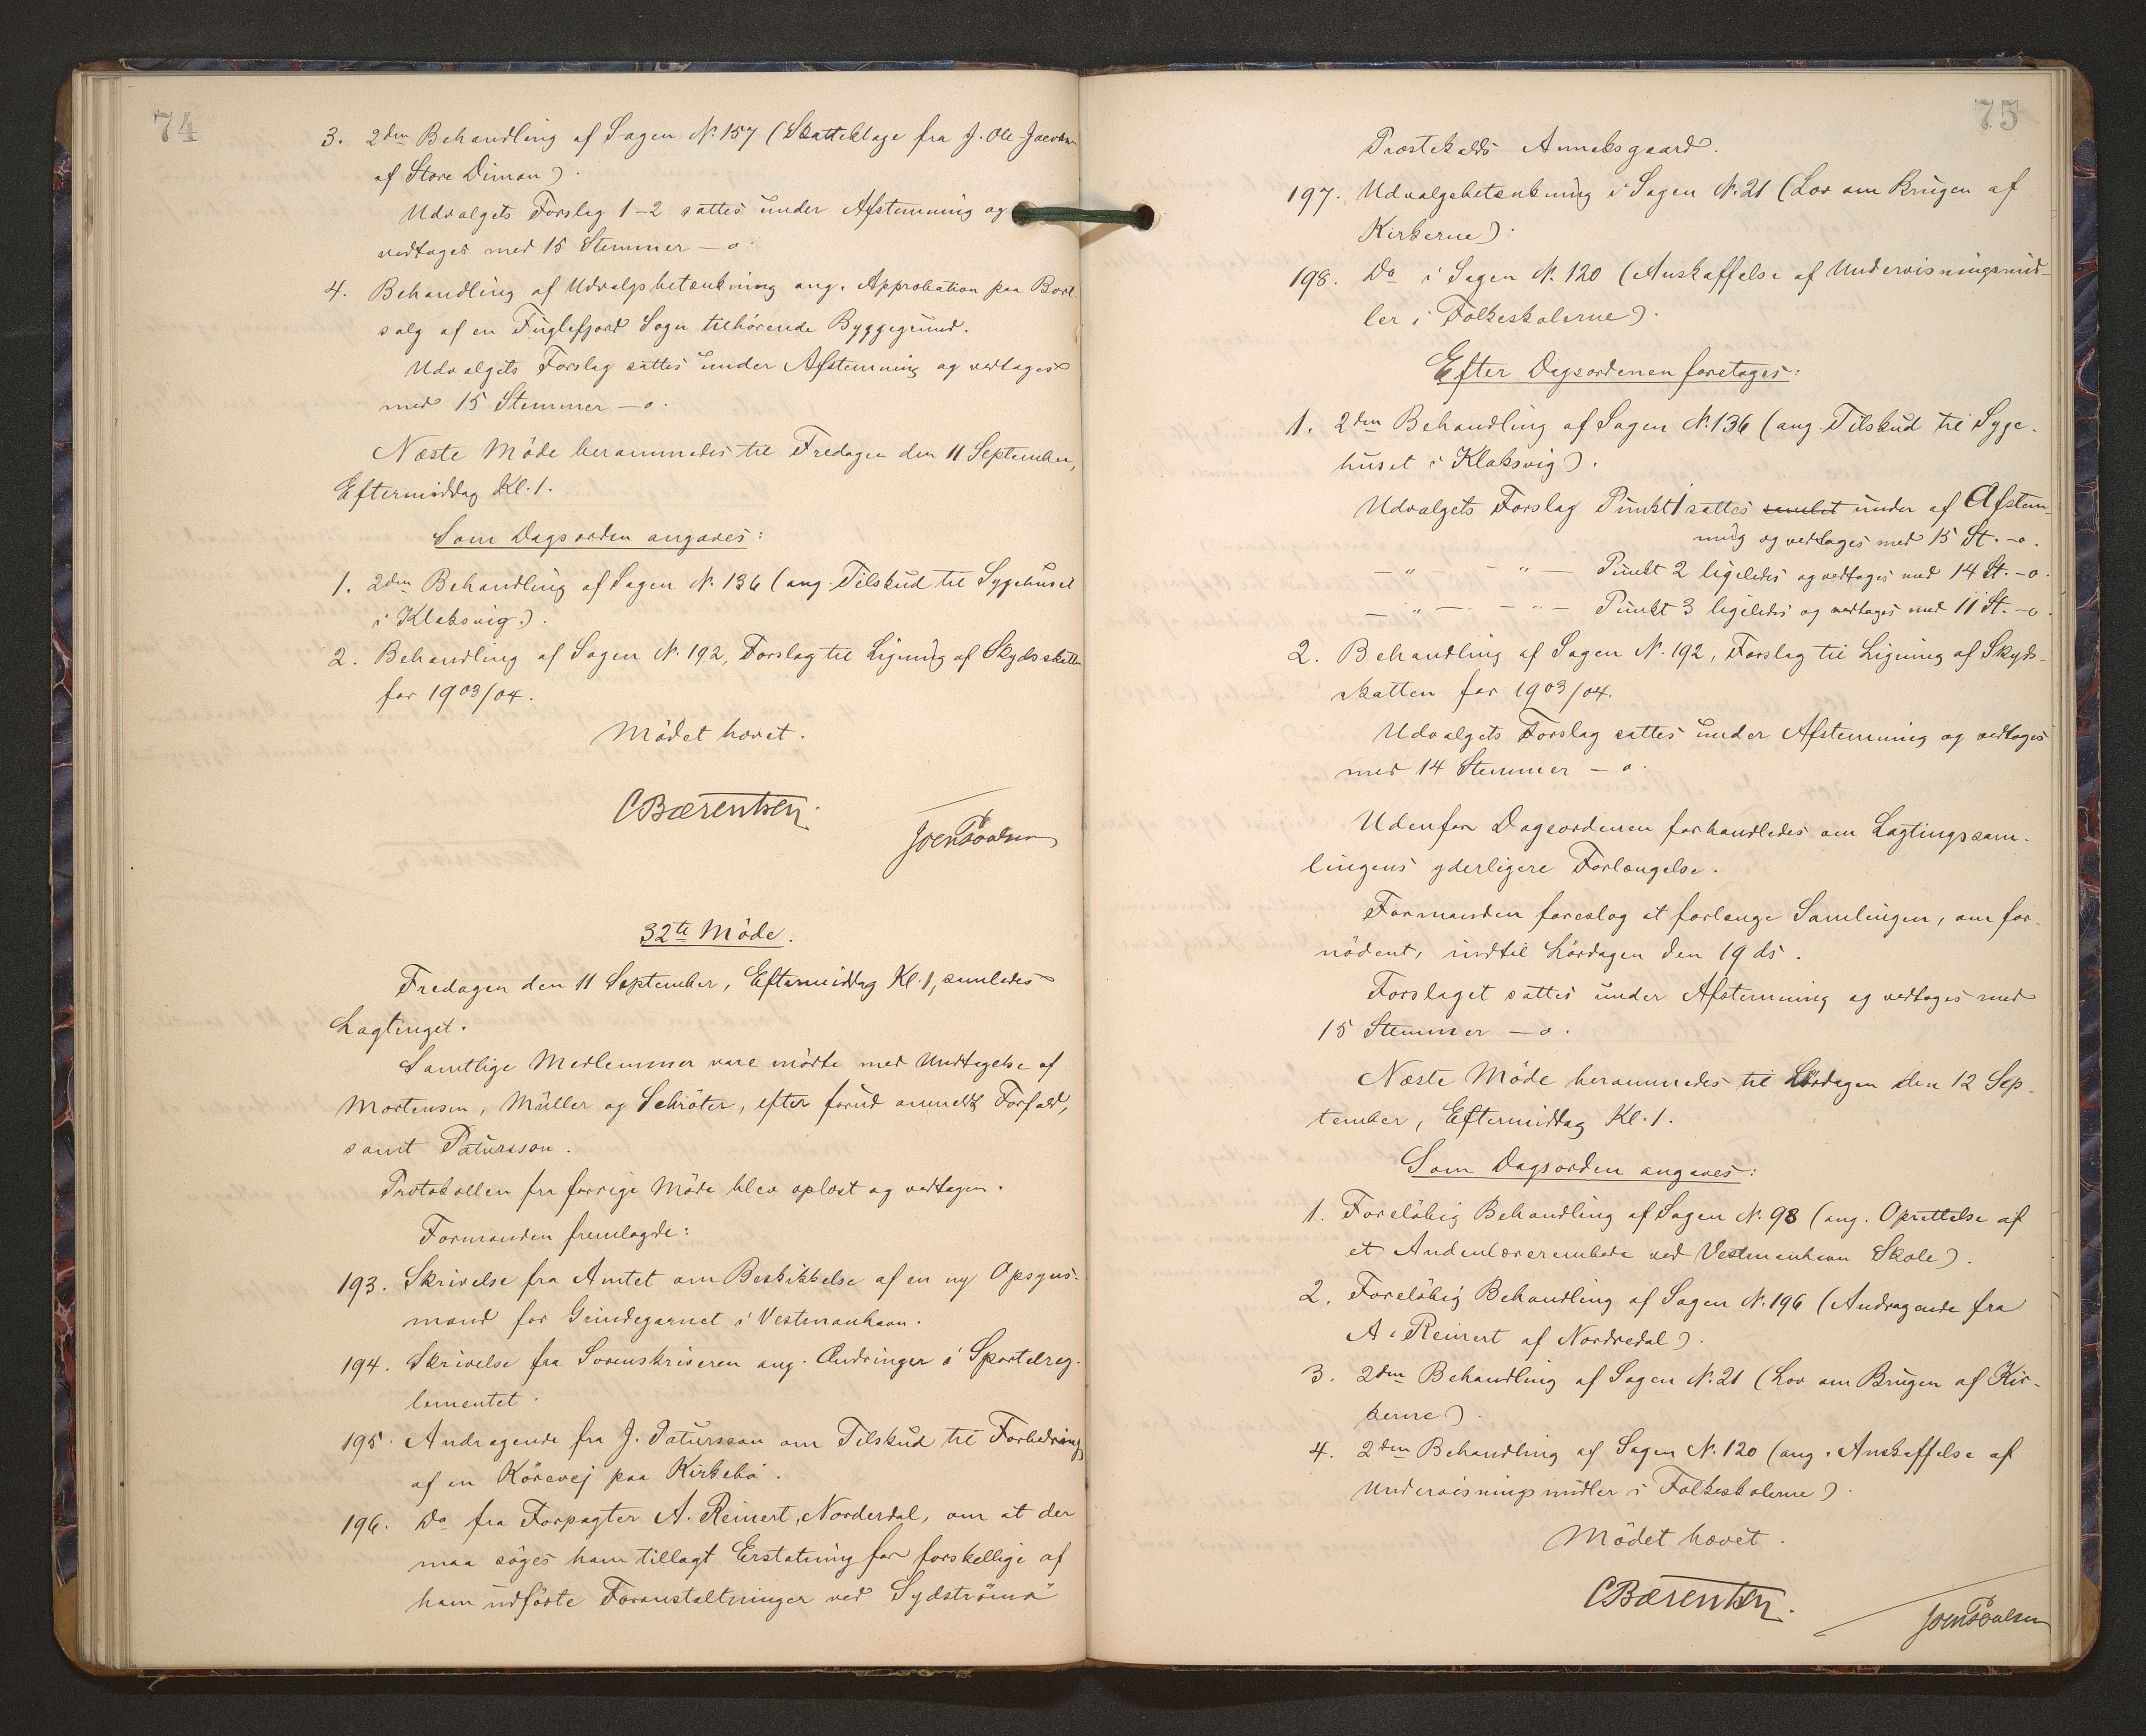 74
3. 2den Behandling af Sagen N. 157 (Skatteklage fra J. Ole Jacobsen
af Store Dimon).
Udvalgets Forslag 1-2 sattes under Afstemning og
vedtoges med 15 Stemmer – o.
4. Behandling af Udvalgsbetænkning ang. Approbation paa Bort-
salg af en Fuglefjord Sogn tilhørende Byggegrund.
Udvalgets Forslag sattes under Afstemning og vedtoges
med 15 Stemmer – o.
Næste Möde berammedes til Fredagen den 11 September,
Eftermiddag Kl. 1.
Som Dagsorden angaves:
1. 2den Behandling af Sagen N. 136 (ang. Tilskud til Sygehuset
i Klaksvig).
2. Behandling af Sagen N. 192, Forslag til Ligning af Skydsskatten
for 1903/04.
Mödet hævet.
CBærentsen.
Joen Poulsen
32te Möde.
Fredagen den 11 September, Eftermiddag Kl. 1, samledes
Lagtinget.
Samtlige Medlemmer vare mödte med Undtagelse af
Mortensen, Müller og Schröter, efter forud anmeldt Forfald,
samt Patursson.
Protokollen fra forrige Möde blev oplæst og vedtagen.
Formanden fremlagde:
193. Skrivelse fra Amtet om Beskikkelse af en ny Opsyns-
mand for Grindegarnet i Vestmanhavn.
194. Skrivelse fra Sorenskriveren ang. Ændringer i Sportelreg-
lementet.
195. Andragende fra J. Patursson om Tilskud til Forbedring
af en Körevej paa Kirkebö.
196. Do fra Forpagter A. Reinert, Norderdal, om at der
maa söges ham tillagt Erstatning for forskellige af
ham udförte Foranstaltninger ved Sydströmö
75
Præstekalds Anneksgaard.
197. Udvalgsbetænkning i Sagen N. 21 (Lov om Brugen af
Kirkerne).
198. Do i Sagen N. 120 (Anskaffelse af Undervisningsmid-
ler i Folkeskolerne).
Efter Dagsordenen foretoges:
1. 2den Behandling af Sagen N. 136 (ang. Tilskud til Syge-
huset i Klaksvig).
Udvalgets Forslag Punkt 1 sattes samlet under af Afstem-
ning og vedtoges med 15 St. – o.
– " – – " – Punkt 2 ligeledes og vedtoges med 14 St. – o.
– " – – " – Punkt 3 ligeledes og vedtoges med 11 St. – o.
2. Behandling af Sagen N. 192, Forslag til Ligning af Skyds-
skatten for 1903/04.
Udvalgets Forslag sattes under Afstemning og vedtoges
med 14 Stemmer – o.
Udenfor Dagsordenen forhandledes om Lagtingssam-
lingens yderligere Forlængelse.
Formanden foreslog at forlænge Samlingen, om for-
nödent, indtil Lördagen den 19 ds.
Forslaget sattes under Afstemning og vedtoges med
15 Stemmer – o.
Næste Möde berammedes til Lördagen den 12 Sep-
tember, Eftermiddag Kl. 1.
Som Dagsorden angaves:
1. Forelöbig Behandling af Sagen N. 98 (ang. Oprettelse af
et Andenlærerembede ved Vestmanhavn Skole).
2. Forelöbig Behandling af Sagen N. 196 (Andragende fra
A. Reinert af Nordredal).
3. 2den Behandling af Sagen N. 21 (Lov om Brugen af Kir-
kerne).
4. 2den Behandling af Sagen N. 120 (ang. Anskaffelse af
Undervisningsmidler i Folkeskolerne).
Mödet hævet.
CBærentsen.
Joen Poulsen